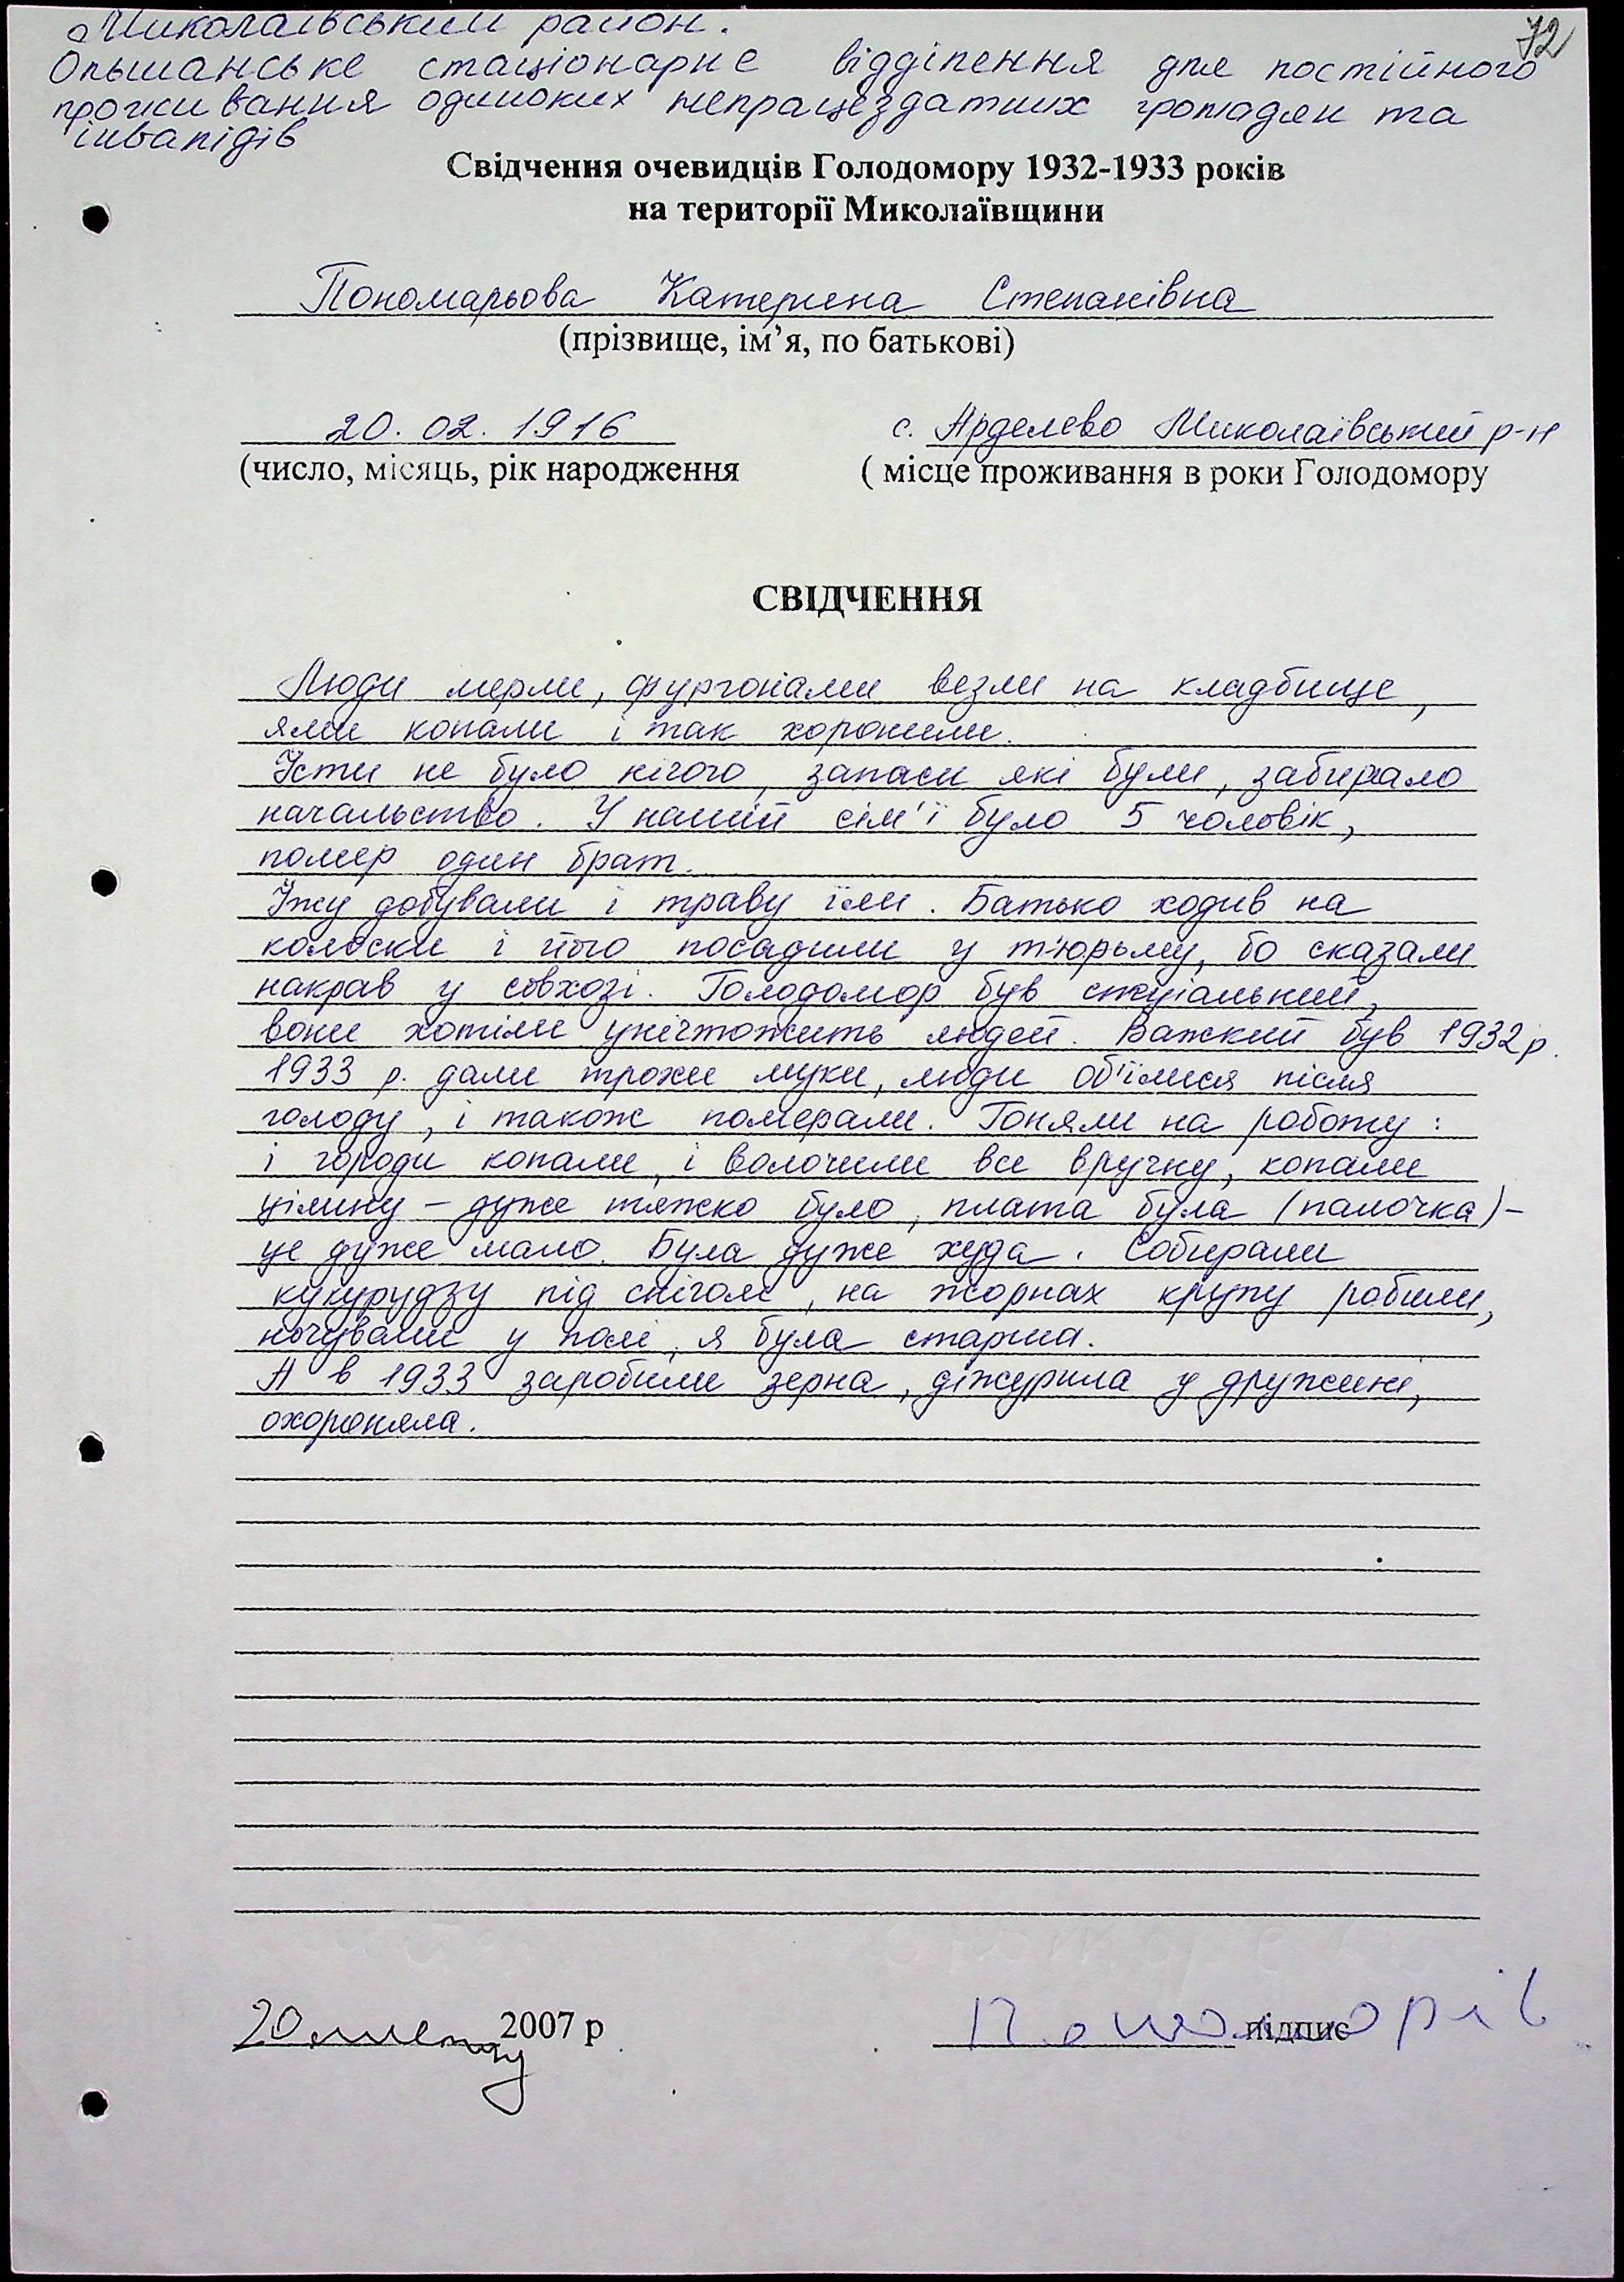 Миколаївський район.
72
Ольшанське стаціонарне відділення для постійного
проживання одиноких непрацездатних громадян та
інвалідів
Свідчення очевидців Голодомору 1932-1933 років
на території Миколаївщини
Пономарьова Катерина Степанівна
(прізвище, ім’я, по батькові)
20. 02. 1916 с. Арделево Миколаївський р-н
(число, місяць, рік народження ( місце проживання в роки Голодомору
СВІДЧЕННЯ
Люди мерли, фургонами везли на кладбище,
ями копали і так хоронили.
Їсти не було нічого, запаси які були, забирало
начальство. У нашій сім'ї було 5 чоловік,
помер один брат.
Їжу добували і траву їли. Батько ходив на
колоски і його посадили у тюрьму, бо сказали
накрав у совхозі. Голодомор був спеціальний,
вони хотіли унічтожить людей. Важкий був 1932р.
1933 р. дали трохи муки, люди об'їлися після
голоду, і також померали. Гоняли на роботу:
і городи копали, і волочили все вручну, копали
цілину – дуже тяжко було, плата була (палочка) –
це дуже мало. Була дуже худа. Собирали
кукурудзу під снігом, на жорнах крупу робили,
ночували у полі, я була старша.
А в 1933 заробили зерна, діжурила у дружині,
охороняла.
20 2007 р підпис